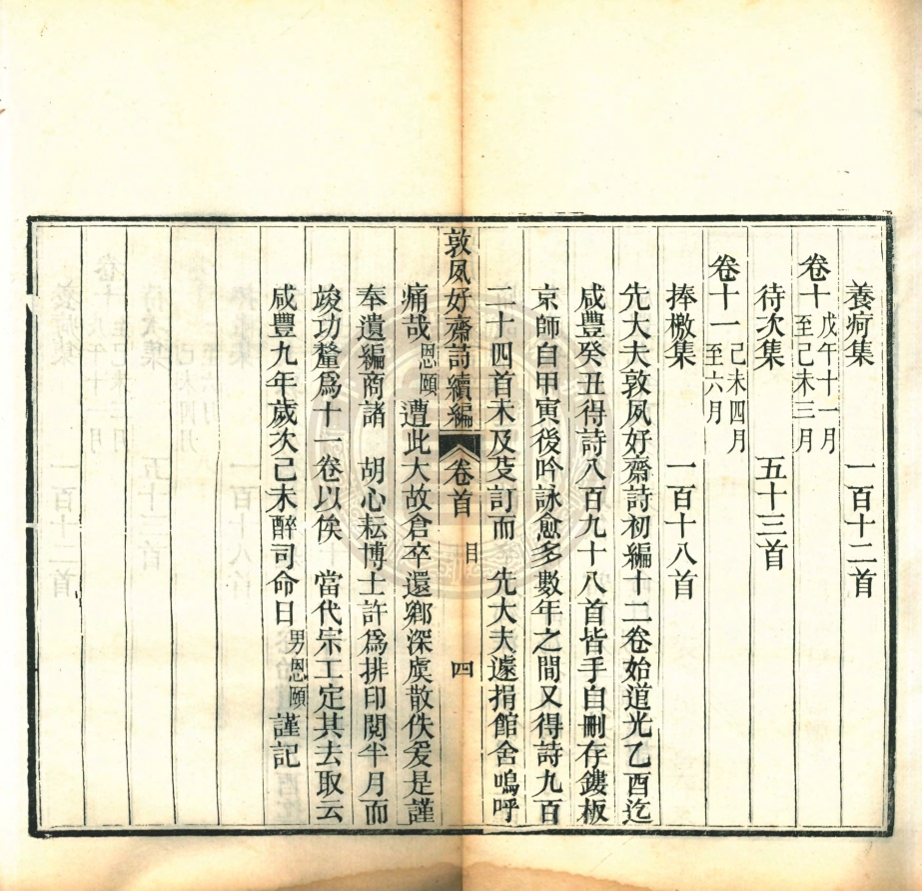 養疴集　一百十二首
卷十戊午十一月至己未三月
待次集　五十三首
卷十一己未四月至六月
捧檄集　一百十八首
先大夫敦夙好齋詩初編十二卷始道光乙酉迄
咸豐癸丑得詩八百九十八首皆手自刪存鏤板
京師自甲寅後吟詠愈多數年之間又得詩九百
二十四首未及芟訂而　先大夫遽捐館舍嗚呼
敦夙好齋詩續編　卷首　目　四
痛哉恩頤遭此大故倉卒還鄉深虞散佚爰是謹
奉遺編商諸　胡心耘博士許爲排印閱半月而
竣功釐爲十一卷以俟　當代宗工定其去取云
咸豐九年歲次己未醉司命日男恩頤謹記